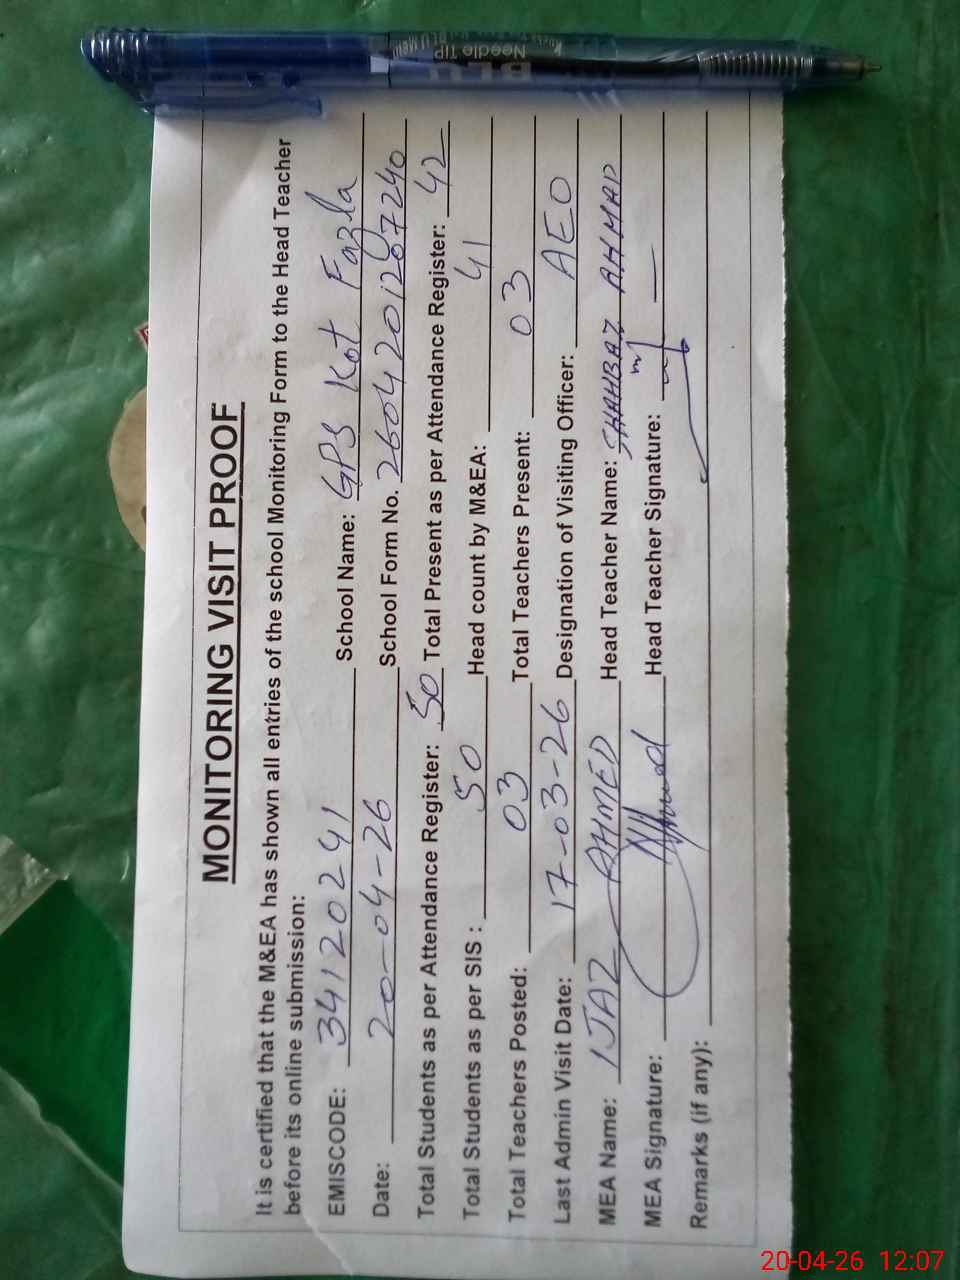 MONITORING VISIT PROOF
It is certified that the M&EA has shown all entries of the school Monitoring Form to the Head Teacher
before its online submission:
EMISCODE: 34120241 School Name: GPS Kot Fazla
Date: 20-04-26 School Form No. 2604201207240
Total Students as per Attendance Register: 50 Total Present as per Attendance Register: 42
Total Students as per SIS : 50 Head count by M&EA: 41
Total Teachers Posted: 03 Total Teachers Present: 03
Last Admin Visit Date: 17-03-26 Designation of Visiting Officer: AEO
MEA Name: IJAZ AHMED Head Teacher Name: SHAHBAZ AHMAD
MEA Signature: Ahmed Head Teacher Signature:
Remarks (if any):
Needle TIP
20-04-26 12:07